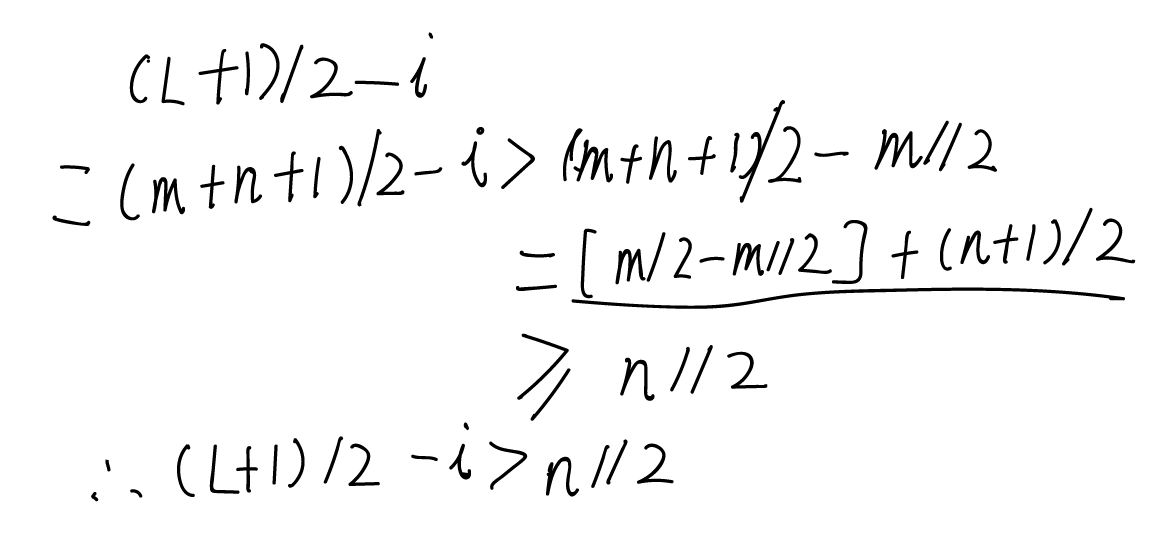 (L+1)/2-i
=(m+n+1)/2-i>(m+n+1)/2-m//2
=[m/2-m//2]+(n+1)/2
⩾ n//2
∴ (L+1)/2-i>n//2